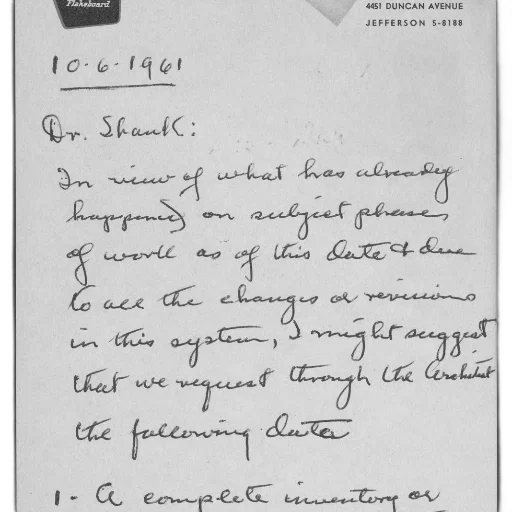 Flakeboard
4451 DUNCAN AVENUE
JEFFERSON 5-8188
10-6-1961
Dr. Shank:
In view of what has already
happened on subject phases
of work as of this date & due
to all the changes or revisions
in this system, I might suggest
that we request through the Architect
the following data
1- A complete inventory or